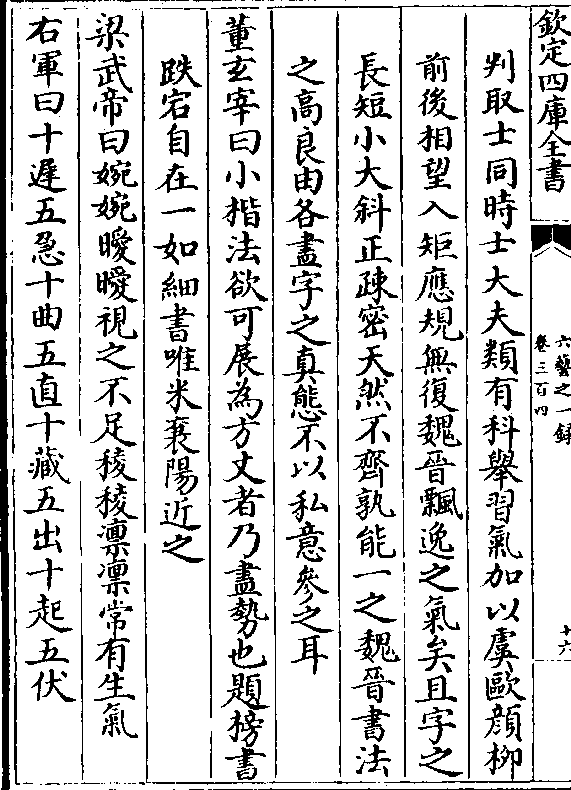 欽定四庫全書
六藝之一録
卷三百四
十六
判取士同時士大夫類有科舉習氣加以虞歐顔栁
前後相望入矩應規無復魏晉飄逸之氣矣且字之
長短小大斜正疎密天然不齊孰能一之魏晉書法
之高良由各盡字之真態不以私意參之耳
董玄宰曰小楷法欲可展為方丈者乃盡勢也題榜書
跌宕自在一如細書唯米襄陽近之
梁武帝曰婉婉曖曖視之不足稜稜凛凛常有生氣
右軍曰十遲五急十曲五直十藏五出十起五伏